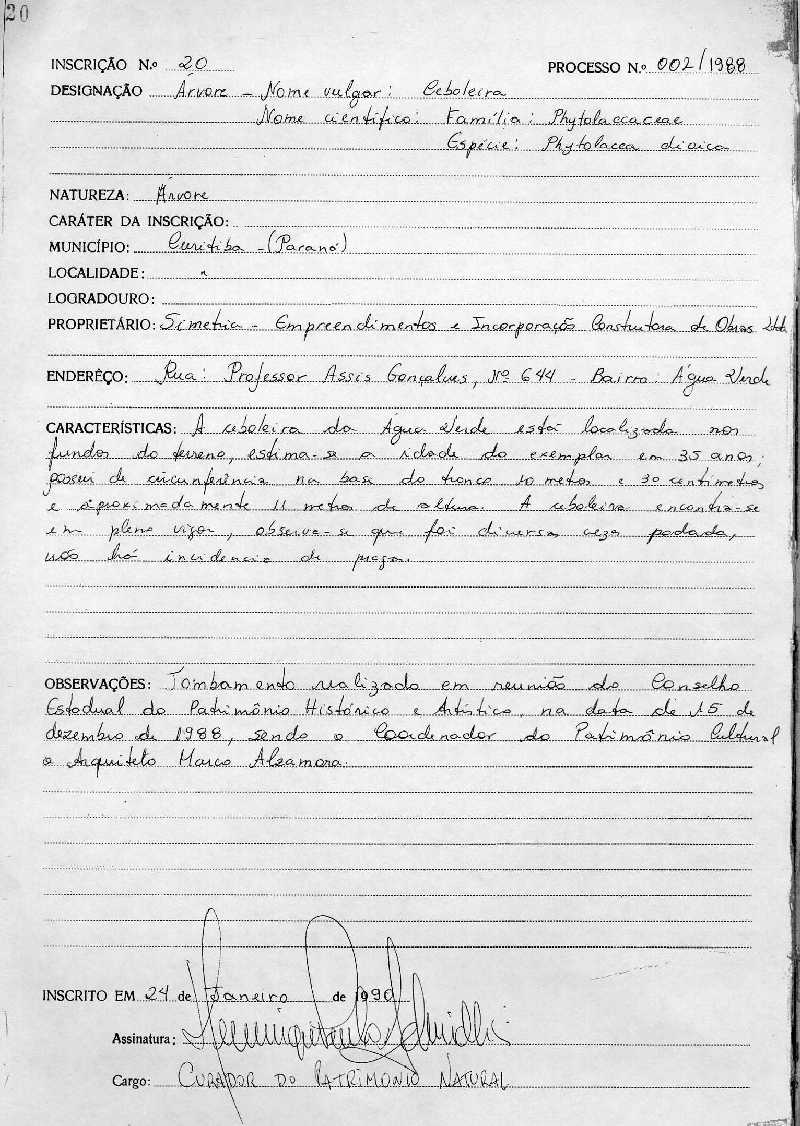 20
INSCRIÇÃO N.º 20 PROCESSO N.º 002/1988
DESIGNAÇÃO Árvore - Nome vulgar: Ceboleira
Nome científico: Família: Phytolaccaceae
Espécie: Phytolacca dioica
NATUREZA: Árvore
CARÁTER DA INSCRIÇÃO:
MUNICÍPIO: Curitiba - (Paraná)
LOCALIDADE:
LOGRADOURO:
PROPRIETÁRIO: Simetria - Empreendimentos e Incorporação Construtora de Obras Ltda
ENDERÊÇO: Rua: Professor Assis Gonçalves, Nº 644 - Bairro: Água Verde
CARACTERÍSTICAS: A ceboleira da Água Verde está localizada nos
fundos do terreno, estima-se a idade do exemplar em 35 anos;
possui de circunferência na base do tronco 10 metros e 30 centimetros
e aproximadamente 11 metros de altura. A ceboleira encontra-se
em pleno vigor, observa-se que foi diversas vezes podada,
não há incidencia de pragas.
OBSERVAÇÕES: Tombamento realizado em reunião do Conselho
Estadual do Patrimônio Histórico e Artístico, na data de 15 de
dezembro de 1988, sendo o Coordenador do Patimônio Cultural
o Arquiteto Marco Alzamora.
INSCRITO EM 24 de Janeiro de 1990
Assinatura:
Cargo: CURADOR DO PATRIMONIO NATURAL